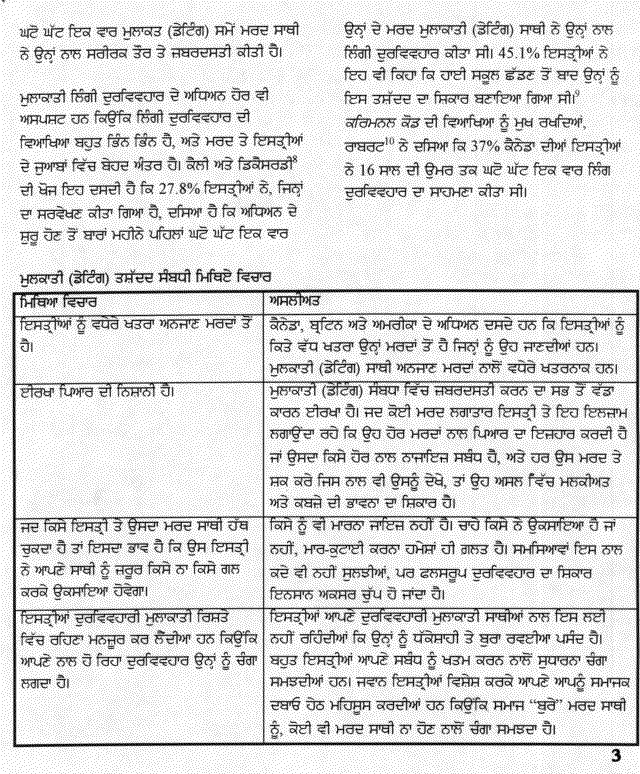 ਘਟੋ ਘੱਟ ਇਕ ਵਾਰ ਮੁਲਾਕਤ (ਡੇਟਿੰਗ) ਸਮੇਂ ਮਰਦ ਸਾਥੀ
ਨੇ ਉਨ੍ਹਾਂ ਨਾਲ ਸਰੀਰਕ ਤੌਰ ਤੇ ਜ਼ਬਰਦਸਤੀ ਕੀਤੀ ਹੈ।
ਮੁਲਾਕਾਤੀ ਲਿੰਗੀ ਦੁਰਵਿਵਹਾਰ ਦੇ ਅਧਿਅਨ ਹੋਰ ਵੀ
ਅਸਪਸ਼ਟ ਹਨ ਕਿਉਂਕਿ ਲਿੰਗੀ ਦੁਰਵਿਵਹਾਰ ਦੀ
ਵਿਆਖਿਆ ਬਹੁਤ ਭਿੰਨ ਭਿੰਨ ਹੈ, ਅਤੇ ਮਰਦ ਤੇ ਇਸਤ੍ਰੀਆਂ
ਦੇ ਜੁਆਬਾਂ ਵਿੱਚ ਬੇਹਦ ਅੰਤਰ ਹੈ। ਕੈਲੀ ਅਤੇ ਡਿਕੈਸਰਡੀ⁸
ਦੀ ਖੋਜ ਇਹ ਦਸਦੀ ਹੈ ਕਿ 27.8% ਇਸਤ੍ਰੀਆਂ ਨੇ, ਜਿਨ੍ਹਾਂ
ਦਾ ਸਰਵੇਖਣ ਕੀਤਾ ਗਿਆ ਹੈ, ਦਸਿਆ ਹੈ ਕਿ ਅਧਿਅਨ ਦੇ
ਸ਼ੁਰੂ ਹੋਣ ਤੋਂ ਬਾਰਾਂ ਮਹੀਨੇ ਪਹਿਲਾਂ ਘਟੋ ਘੱਟ ਇਕ ਵਾਰ
ਉਨ੍ਹਾਂ ਦੇ ਮਰਦ ਮੁਲਾਕਾਤੀ (ਡੇਟਿੰਗ) ਸਾਥੀ ਨੇ ਉਨ੍ਹਾਂ ਨਾਲ
ਲਿੰਗੀ ਦੁਰਵਿਵਹਾਰ ਕੀਤਾ ਸੀ। 45.1% ਇਸਤ੍ਰੀਆਂ ਨੇ
ਇਹ ਵੀ ਕਿਹਾ ਕਿ ਹਾਈ ਸਕੂਲ ਛੱਡਣ ਤੋਂ ਬਾਦ ਉਨ੍ਹਾਂ ਨੂੰ
ਇਸ ਤਸ਼ੱਦਦ ਦਾ ਸ਼ਿਕਾਰ ਬਣਾਇਆ ਗਿਆ ਸੀ।⁹
ਕਰਿਮਨਲ ਕੋਡ ਦੀ ਵਿਆਖਿਆ ਨੂੰ ਮੁਖ ਰਖਦਿਆਂ,
ਰਾਬਰਟ¹⁰ ਨੇ ਦਸਿਆ ਕਿ 37% ਕੈਨੇਡਾ ਦੀਆਂ ਇਸਤ੍ਰੀਆਂ
ਨੇ 16 ਸਾਲ ਦੀ ਉਮਰ ਤਕ ਘਟੋ ਘੱਟ ਇਕ ਵਾਰ ਲਿੰਗ
ਦੁਰਵਿਵਹਾਰ ਦਾ ਸਾਹਮਣਾ ਕੀਤਾ ਸੀ।
ਮੁਲਕਾਤੀ (ਡੇਟਿੰਗ) ਤਸ਼ੱਦਦ ਸੰਬਧੀ ਮਿਥਿਏ ਵਿਚਾਰ
ਮਿਥਿਆ ਵਿਚਾਰ
ਅਸਲੀਅਤ
ਇਸਤ੍ਰੀਆਂ ਨੂੰ ਵਧੇਰੇ ਖਤਰਾ ਅਨਜਾਣ ਮਰਦਾਂ ਤੋਂ
ਹੈ।
ਕੈਨੇਡਾ, ਬ੍ਰਟਿਨ ਅਤੇ ਅਮਰੀਕਾ ਦੇ ਅਧਿਅਨ ਦਸਦੇ ਹਨ ਕਿ ਇਸਤ੍ਰੀਆਂ ਨੂੰ
ਕਿਤੇ ਵੱਧ ਖਤਰਾ ਉਨ੍ਹਾਂ ਮਰਦਾਂ ਤੋਂ ਹੈ ਜਿਨ੍ਹਾਂ ਨੂੰ ਉਹ ਜਾਣਦੀਆਂ ਹਨ।
ਮੁਲਕਾਤੀ (ਡੇਟਿੰਗ) ਸਾਥੀ ਅਨਜਾਣ ਮਰਦਾਂ ਨਾਲੋਂ ਵਧੇਰੇ ਖਤਰਨਾਕ ਹਨ।
ਈਰਖਾ ਪਿਆਰ ਦੀ ਨਿਸ਼ਾਨੀ ਹੈ।
ਮੁਲਾਕਾਤੀ (ਡੇਟਿੰਗ) ਸੰਬਧਾ ਵਿੱਚ ਜ਼ਬਰਦਸਤੀ ਕਰਨ ਦਾ ਸਭ ਤੋਂ ਵੱਡਾ
ਕਾਰਨ ਈਰਖਾ ਹੈ। ਜਦ ਕੋਈ ਮਰਦ ਲਗਾਤਾਰ ਇਸਤ੍ਰੀ ਤੇ ਇਹ ਇਲਜ਼ਾਮ
ਲਗਾਉਂਦਾ ਰਹੇ ਕਿ ਉਹ ਹੋਰ ਮਰਦਾਂ ਨਾਲ ਪਿਆਰ ਦਾ ਇਜ਼ਹਾਰ ਕਰਦੀ ਹੈ
ਜਾਂ ਉਸਦਾ ਕਿਸੇ ਹੋਰ ਨਾਲ ਨਾਜਾਇਜ਼ ਸਬੰਧ ਹੈ, ਅਤੇ ਹਰ ਉਸ ਮਰਦ ਤੇ
ਸ਼ਕ ਕਰੇ ਜਿਸ ਨਾਲ ਵੀ ਉਸਨੂੰ ਦੇਖੇ, ਤਾਂ ਉਹ ਅਸਲ ਵਿੱਚ ਮਲਕੀਅਤ
ਅਤੇ ਕਬਜ਼ੇ ਦੀ ਭਾਵਨਾ ਦਾ ਸ਼ਿਕਾਰ ਹੈ।
ਜਦ ਕਿਸੇ ਇਸਤ੍ਰੀ ਤੇ ਉਸਦਾ ਮਰਦ ਸਾਥੀ ਹੱਥ
ਚੁਕਦਾ ਹੈ ਤਾਂ ਇਸਦਾ ਭਾਵ ਹੈ ਕਿ ਉਸ ਇਸਤ੍ਰੀ
ਨੇ ਆਪਣੇ ਸਾਥੀ ਨੂੰ ਜ਼ਰੂਰ ਕਿਸੇ ਨਾ ਕਿਸੇ ਗਲ
ਕਰਕੇ ਉਕਸਾਇਆ ਹੋਵੇਗਾ।
ਕਿਸੇ ਨੂੰ ਵੀ ਮਾਰਨਾ ਜਾਇਜ਼ ਨਹੀਂ ਹੈ। ਚਾਹੇ ਕਿਸੇ ਨੇ ਉਕਸਾਇਆ ਹੈ ਜਾਂ
ਨਹੀਂ, ਮਾਰ-ਕੁਟਾਈ ਕਰਨਾ ਹਮੇਸ਼ਾਂ ਹੀ ਗਲਤ ਹੈ। ਸਮਸਿਆਵਾਂ ਇਸ ਨਾਲ
ਕਦੇ ਵੀ ਨਹੀਂ ਸੁਲਝੀਆਂ, ਪਰ ਫਲਸਰੂਪ ਦੁਰਵਿਵਹਾਰ ਦਾ ਸ਼ਿਕਾਰ
ਇਨਸਾਨ ਅਕਸਰ ਚੁੱਪ ਹੋ ਜਾਂਦਾ ਹੈ।
ਇਸਤ੍ਰੀਆਂ ਦੁਰਵਿਵਹਾਰੀ ਮੁਲਾਕਾਤੀ ਰਿਸ਼ਤੇ
ਵਿੱਚ ਰਹਿਣਾ ਮਨਜ਼ੂਰ ਕਰ ਲੈਂਦੀਆ ਹਨ ਕਿਉਂਕਿ
ਆਪਣੇ ਨਾਲ ਹੋ ਰਿਹਾ ਦੁਰਵਿਵਹਾਰ ਉਨ੍ਹਾਂ ਨੂੰ ਚੰਗਾ
ਲਗਦਾ ਹੈ।
ਇਸਤ੍ਰੀਆਂ ਆਪਣੇ ਦੁਰਵਿਵਹਾਰੀ ਮੁਲਾਕਾਤੀ ਸਾਥੀਆਂ ਨਾਲ ਇਸ ਲਈ
ਨਹੀਂ ਰਹਿੰਦੀਆਂ ਕਿ ਉਨ੍ਹਾਂ ਨੂੰ ਧੱਕੇਸ਼ਾਹੀ ਤੇ ਬੁਰਾ ਰਵਈਆ ਪਸੰਦ ਹੈ।
ਬਹੁਤ ਇਸਤ੍ਰੀਆਂ ਆਪਣੇ ਸਬੰਧ ਨੂੰ ਖਤਮ ਕਰਨ ਨਾਲੋਂ ਸੁਧਾਰਨਾ ਚੰਗਾ
ਸਮਝਦੀਆਂ ਹਨ। ਜਵਾਨ ਇਸਤ੍ਰੀਆਂ ਵਿਸ਼ੇਸ਼ ਕਰਕੇ ਆਪਣੇ ਆਪਨੂੰ ਸਮਾਜਕ
ਦਬਾਓ ਹੇਠ ਮਹਿਸੂਸ ਕਰਦੀਆਂ ਹਨ ਕਿਉਂਕਿ ਸਮਾਜ “ਬੁਰੇ” ਮਰਦ ਸਾਥੀ
ਨੂੰ, ਕੋਈ ਵੀ ਮਰਦ ਸਾਥੀ ਨਾ ਹੋਣ ਨਾਲੋਂ ਚੰਗਾ ਸਮਝਦਾ ਹੈ।
3